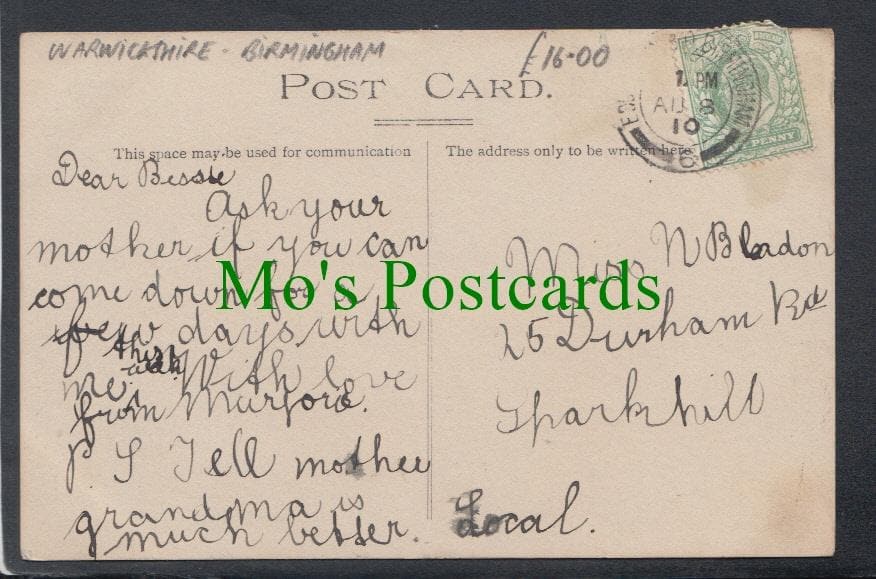 WARWICKSHIRE - BIRMINGHAM
£16-00
POST CARD.
This space may be used for communication
The address only to be written here
BIRMINGHAM
PM
AU 8
10
PENNY
Dear Bessie
Ask your
mother if you can
come down for a
few days with
me this week With love
from Marjorie.
P S Tell mother
grandma is
much better.
Miss N Blandon
25 Durham Rd
Sparkhill
Local.
Mo's Postcards